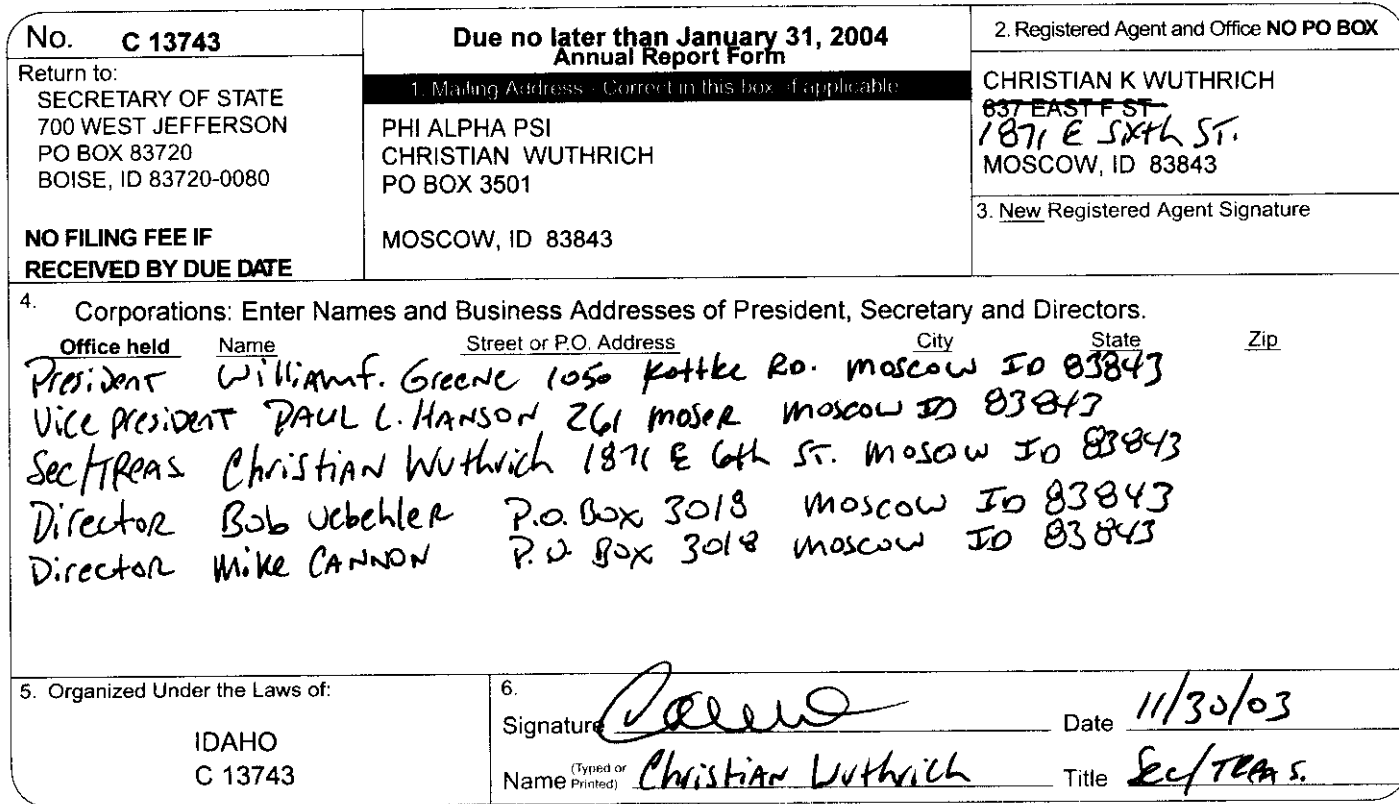 No. C 13743
Return to:
SECRETARY OF STATE
700 WEST JEFFERSON
PO BOX 83720
BOISE, ID 83720-0080
NO FILING FEE IF
RECEIVED BY DUE DATE
Due no later than January 31, 2004
Annual Report Form
1. Mailing Address - Correct in this box if applicable
PHI ALPHA PSI
CHRISTIAN WUTHRICH
PO BOX 3501
MOSCOW, ID 83843
2. Registered Agent and Office NO PO BOX
CHRISTIAN K WUTHRICH
637 EAST F ST
1871 E Sixth ST.
MOSCOW, ID 83843
3. New Registered Agent Signature
4. Corporations: Enter Names and Business Addresses of President, Secretary and Directors.
Office held Name Street or P.O. Address City State Zip
President William F. Greene 1050 Kottke RD. Moscow ID 83843
Vice President PAUL L. HANSON 261 Moser Moscow ID 83843
Sec/TREAS Christian Wuthrich 1871 E 6th ST. Moscow ID 83843
Director Bob Uebehler P.O. Box 3018 Moscow ID 83843
Director Mike CANNON P.O. Box 3018 Moscow ID 83843
5. Organized Under the Laws of:
IDAHO
C 13743
6.
Signature Date 11/30/03
Name (Typed or Printed) Christian Wuthrich Title Sec/TREAS.